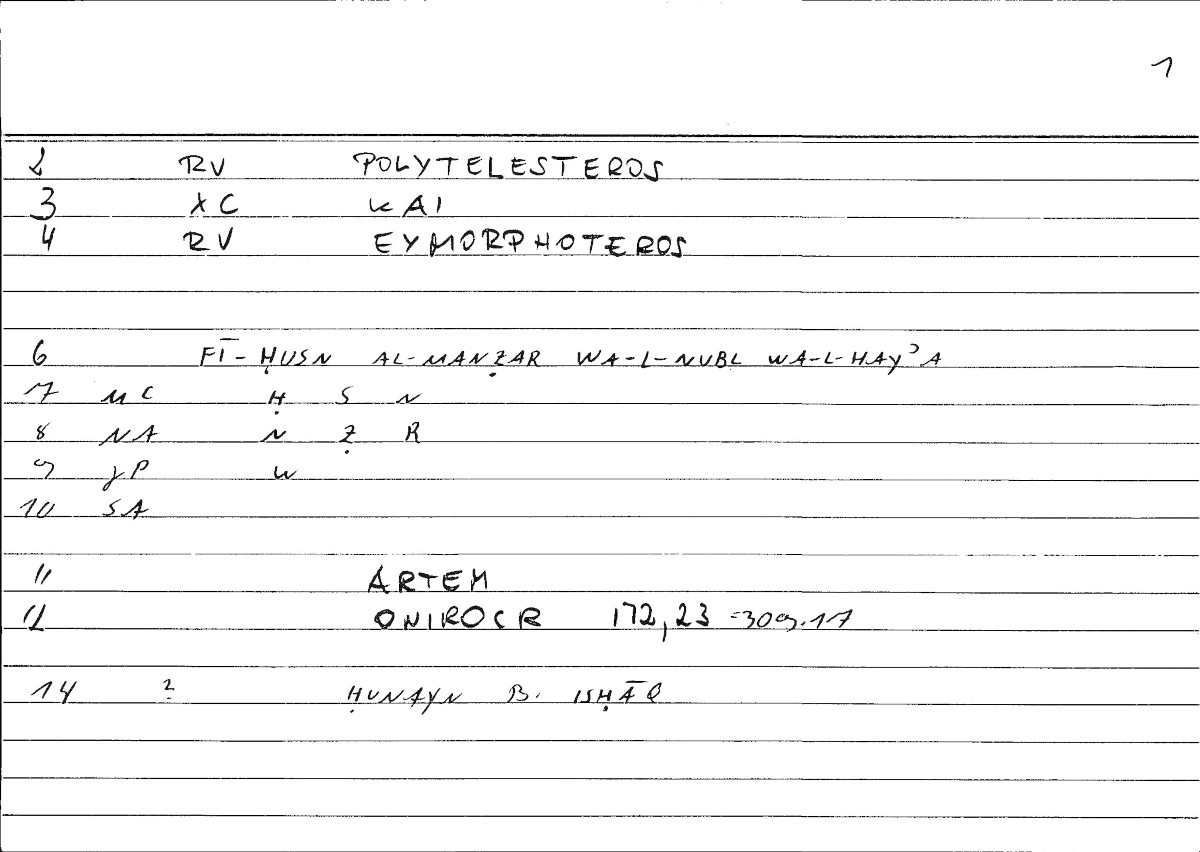 1
2 RV POLYTELESTEROS
3 XC KAI
4 RV EYMORPHOTEROS
6 FĪ-ḤUSN AL-MANẒAR WA-L-NUBL WA-L-HAYʾA
7 MC Ḥ S N
8 NA N Ẓ R
9 JP W
10 SA
11 ARTEM
12 ONIROCR 172,23 =309.17
14 2 ḤUNAYN B. ISḤĀQ